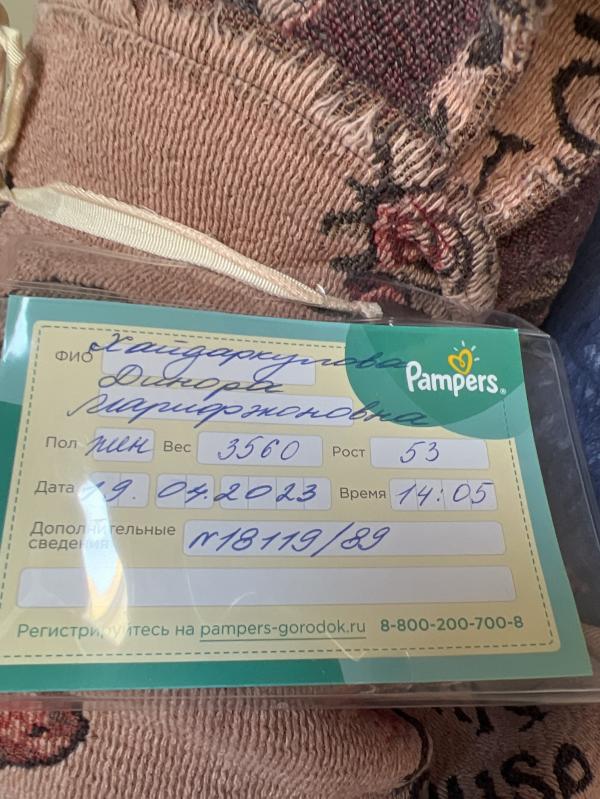 ФИО Хайдаркулова
Динора
Шарифжоновна
Pampers®
Пол жен Вес 3560 Рост 53
Дата 19.04.2023 Время 14:05
Дополнительные сведения №18119/89
Регистрируйтесь на pampers-gorodok.ru 8-800-200-700-8